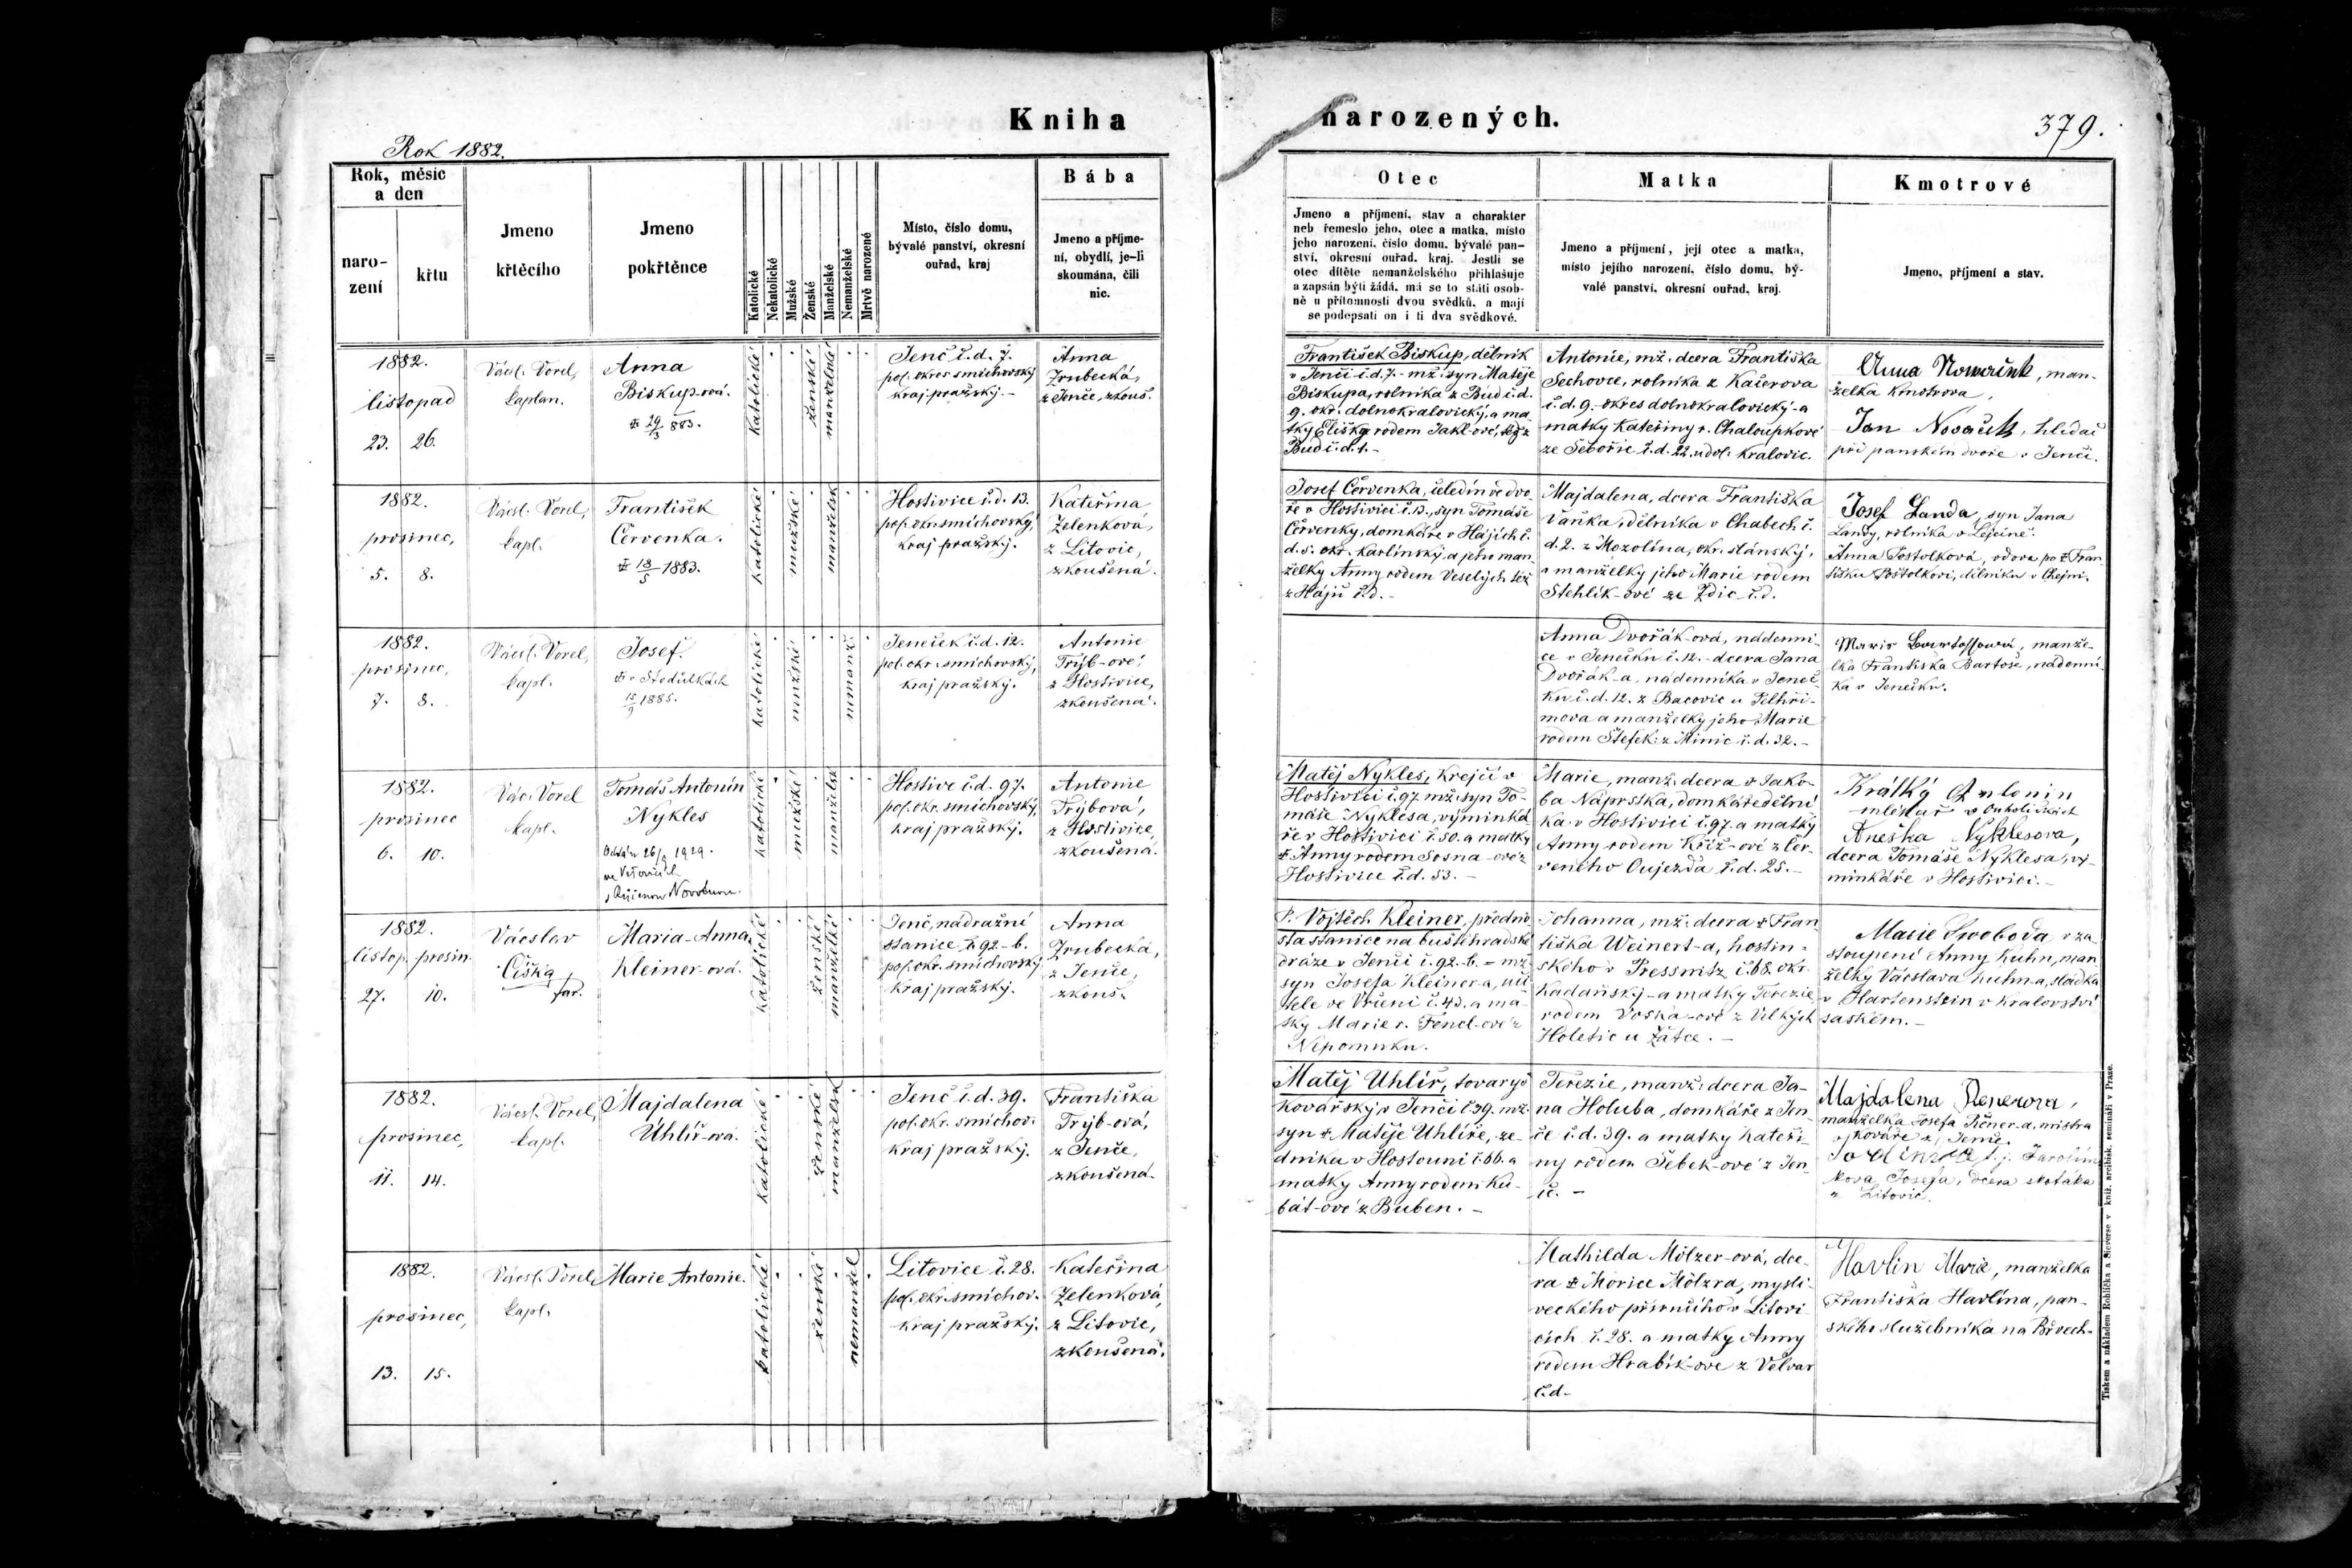 Kniha
narozených.
379.
Rok 1882.
Rok, měsíc
a den
naro-
zení
křtu
Jmeno
křtěcího
Jmeno
pokřtěnce
Katolické
Nekatolické
Mužské
Ženské
Manželské
Nemanželské
Mrtvě narozené
Místo, číslo domu,
bývalé panství, okresní
ouřad, kraj
Bába
Jmeno a příjme-
ní, obydlí, je-li
skoumána, čili
nic.
Otec
Jmeno a příjmení, stav a charakter
neb řemeslo jeho, otec a matka, místo
jeho narození, číslo domu, bývalé pan-
ství, okresní ouřad, kraj. Jestli se
otec dítěte nemanželského přihlašuje
a zapsán býti žádá, má se to státi osob-
ně u přítomnosti dvou svědků, a mají
se podepsati on i ti dva svědkové.
Matka
Jmeno a příjmení, její otec a matka,
místo jejího narození, číslo domu, bý-
valé panství, okresní ouřad, kraj.
Kmotrové
Jmeno, příjmení a stav.
1882.
listopad
23. 26.
Václ. Vorel,
kaplan.
Anna
Biskup-ová.
29/3 883.
katolické
ženské
manželské
Jenč č.d. 7.
pol. okres smíchovský
kraj pražský.-
Anna
Zrubecká,
z Jenče, zkouš.
František Biskup, dělník
v Jenči č.d. 7.- mž. syn Matěje
Biskupa, rolníka z Bud č.d.
9. okr. dolnokralovický, a ma
tky Elišky rodem Jakl-ové, též z
Bud č.d. 1.-
Antonie, mž. dcera Františka
Sechovce, rolníka z Kačerova
č.d. 9. okres dolnokralovický - a
matky Kateřiny r. Chaloupkové
ze Šetořic č.d. 22. u dol. Kralovic.
Anna, man-
želka kmotrova,
Jan Nováčik, hlídač
při panském dvoře v Jenči.
1882.
prosinec,
5. 8.
Václ. Vorel,
kapl.
František
Červenka.
18/5 1883.
katolické
mužské
manželsk
Hostivice č.d. 13.
pol. okr. smíchovský,
kraj pražský.
Kateřina
Zelenková,
z Litovic,
zkoušená.
Josef Červenka, čeledín ve dvo-
ře v Hostivici č. 13., syn Tomáše
Červenky, domkáře v Hájích č.
d. 5. okr. Karlínský, a jeho man-
želky Anny rodem Veselých též
z Hájů č.d.-
Majdalena, dcera Františka
Vaňka, dělníka v Chabech č.
d. 2. z Mozolína, okr. slánský,
a manželky jeho Marie rodem
Stehlík-ové ze Zdic č.d.
Josef Landa, syn Jana
Landy, rolníka v
Anna Postolková, vdova po Fran-
tišku Postolkovi, dělníku v
1882.
prosinec,
7. 8.
Václ. Vorel,
kapl.
Josef.
v Stodůlkách
15/9 1885.
katolické
mužské
nemanž.
Jeneček č.d. 12.
pol. okr. smíchovský,
kraj pražský.
Antonie
Trýb-ové,
z Hostivice,
zkoušená.
Anna Dvořák-ová, nádenni-
ce v Jenečku č. 12.- dcera Jana
Dvořák-a, nádenníka v Jeneč-
ku č.d. 12. z Bacovic u Pelhři-
mova a manželky jeho Marie
rodem Štefek. z Minic č.d. 32.-
Marie, manže-
lka Františka Bartoše, nádenní-
ka v Jenečku.
1882.
prosinec
6. 10.
Vác. Vorel
kapl.
Tomáš Antonín
Nykles
Oddán 26/ 1929.
ve
s Růženou
katolické
mužské
manželsk
Hostivc č.d. 97.
pol. okr. smíchovský,
kraj pražský.
Antonie
Trýbová,
z Hostivice,
zkoušená.
Matěj Nykles, krejčí v
Hostivici č. 97. mž. syn To-
máše Nyklesa, výminká
ře v Hostivici č. 50. a matky
Anny rodem Sosna-ové z
Hostivice č.d. 53.-
Marie, manž. dcera Jako-
ba Náprstka, domkáře dělní
ka v Hostivici č. 97. a matky
Anny rodem Kříž-ové z Čer-
veného Oujezda č.d. 25.-
Krátký Antonin
mlékař v
Anežka Nyklesova,
dcera Tomáše Nyklesa, vý-
minkáře v Hostivici.-
1882.
listop. prosin.
27. 10.
Václav
Čiška
far.
Maria-Anna
Kleiner-ová.
katolické
ženské
manželské
Jenč, nádražní
stanice č. 92.-b.
pol. okr. smíchovský
kraj pražský.
Anna
Zrubecká,
z Jenče,
zkouš.
P. Vojtěch Kleiner, předno
sta stanice na buštěhradské
dráze v Jenči č. 92.-b.- mž.
syn Josefa Kleiner-a, uči
tele ve č. 43. a ma
tky Marie r. Fencl-ové z
Nepomuku.
Johanna, mž. dcera Fran
tiška Weinert-a, hostin-
ského v Pressnitz č. 68. okr.
Kadaňský - a matky Terezie
rodem Voska-ové z Velkých
Holetic u Žatce.-
Marie Swoboda v za-
stoupení Anny Kuhn, man
želky Václava Kuhn-a, sládka
v Hartenstein v království
saském.-
1882.
prosinec,
11. 14.
Václ. Vorel,
kapl.
Majdalena
Uhlíř-ová.
katolické
ženské
manželsk
Jenč č.d. 39.
pol. okr. smíchov.
kraj pražský.
Františka
Trýb-ová,
z Jenče,
zkoušená.
Matěj Uhlíř, tovaryš
kovářský v Jenči č. 39. mž.
syn Matěje Uhlíře, ze-
dníka v Hostouni č. 66. a
matky Anny rodem Ku-
bát-ové z Buben.-
Terezie, manž. dcera Ja-
na Holuba, domkáře z Jen
če č.d. 39. a matky Kateři-
ny rodem Šebek-ové z Jen-
č.-
Majdalena
manželka Josefa, mistra
kováře z Jenče.
t.j. Jarolím
kova Josefa, dcera skotáka
z Litovic.
1882.
prosinec,
13. 15.
Václ. Vorel,
kapl.
Marie Antonie.
katolické
ženské
nemanžel
Litovice č. 28.
pol. okr. smíchov.
kraj pražský.
Kateřina
Zelenková,
z Litovic,
zkoušená.
Mathilda Mölzer-ová, dce-
ra Morice Mölzra, mysli-
veckého příručího v Litovi-
cích č. 28. a matky Anny
rodem Hrabík-ové z Velvar
č.d-
Havlín Marie, manželka
Františka Havlína, pan-
ského služebníka na Břvech-
Tiskem a nákladem Rohlíčka a Sieverse v kníž. arcibisk. semináři v Praze.